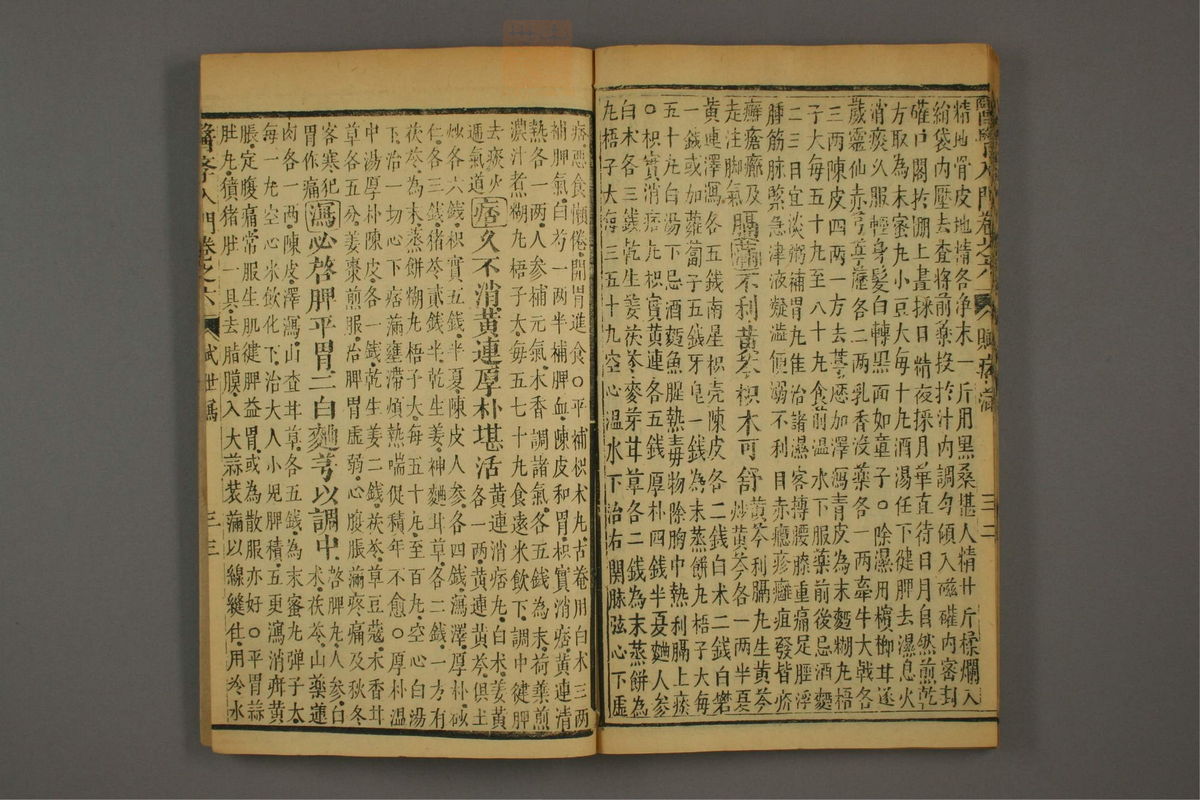 精地骨皮地精各净末一斤用黑桑堪人精廿斤揉爛入
絹袋內壓去查將前藥投於汁內調勻傾入磁確內密封
確戶閣於棚上晝採日精夜採月華直待日月自然煎乾
方取為末蜜丸小豆大每十丸酒湯任下健脾去濕息火
消痰久服輕身髮白轉黑面如童子○除濕用檳榔甘遂
葳靈仙赤芍葶藶各二兩乳香沒藥各一兩牽牛大戟各
三兩陳皮四兩一方去葶藶加澤瀉青皮為末麪糊丸梧
子大每五十丸至八十丸食前溫水下服藥前後忌酒麪
二三日宜淡粥補胃丸隹治諸濕客摶腰膝重痛足脛浮
腫筋脉緊急津液凝澁便溺不利目赤癮疹癰疽發皆疥
癬瘡癥及走注脚氣膈壅不利黃芩枳木可舒黃芩利膈丸生黃芩炒黃芩各一兩半夏
黃連澤瀉各五錢南星枳壳陳皮各二錢白术二錢白礬
一錢或加蘿蔔子五錢牙皂一錢為末蒸餅丸梧子大每
五十丸白湯下忌酒麪魚腥熱毒物除胸中熱利膈上痰
○枳實消痞丸枳實黃連各五錢厚朴四錢半夏麯人參
白术各三錢乾生姜茯苓麥芽甘草各二錢為末蒸餅為
丸梧子大每三五十丸空心溫水下治右關脉弦心下虛
痞惡食懶倦開胃進食○平補枳术丸古菴用白术三兩
補脾氣白芍一兩半補脾血陳皮和胃枳實消痞黃連清
熱各一兩人參補元氣木香調諸氣各五錢為末荷葉煎
濃汁煮糊丸梧子大每五七十丸食遠米飲下調中健脾
去痰火通氣道痞久不消黃連厚朴堪活黃連消痞丸白术姜黃各一兩黃連黃芩俱土
炒各六錢枳實五錢半夏陳皮人參各四錢瀉澤厚朴砍
仁各三錢猪苓貳錢半乾生姜神麯甘草各二錢一方有
茯苓為末蒸餅糊丸梧子大每五十丸至百丸空心白湯
下治一切心下痞滿壅滯煩熱喘促積年不愈○厚朴溫
中湯厚朴陳皮各一錢乾生姜二錢茯苓草豆蔻木香甘
草各五分姜棗煎服治脾胃虛弱心腹脹滿疼痛及秋冬
客寒犯胃作痛瀉必啓脾平胃三白麯芎以調中啓脾丸人參白术茯苓山藥蓮
肉各一兩陳皮澤瀉山查甘草各五錢為末蜜丸彈子太
每一丸空心米飲化下治大人小兒脾積五更瀉消痞黃
脹定腹痛常服生肌健脾益胃或為散服亦好○平胃蒜
肚丸獖猪肚一具去脂膜入大蒜裝滿以線縫住用冷水
醫斈入門卷之六 貳世瀉 三三